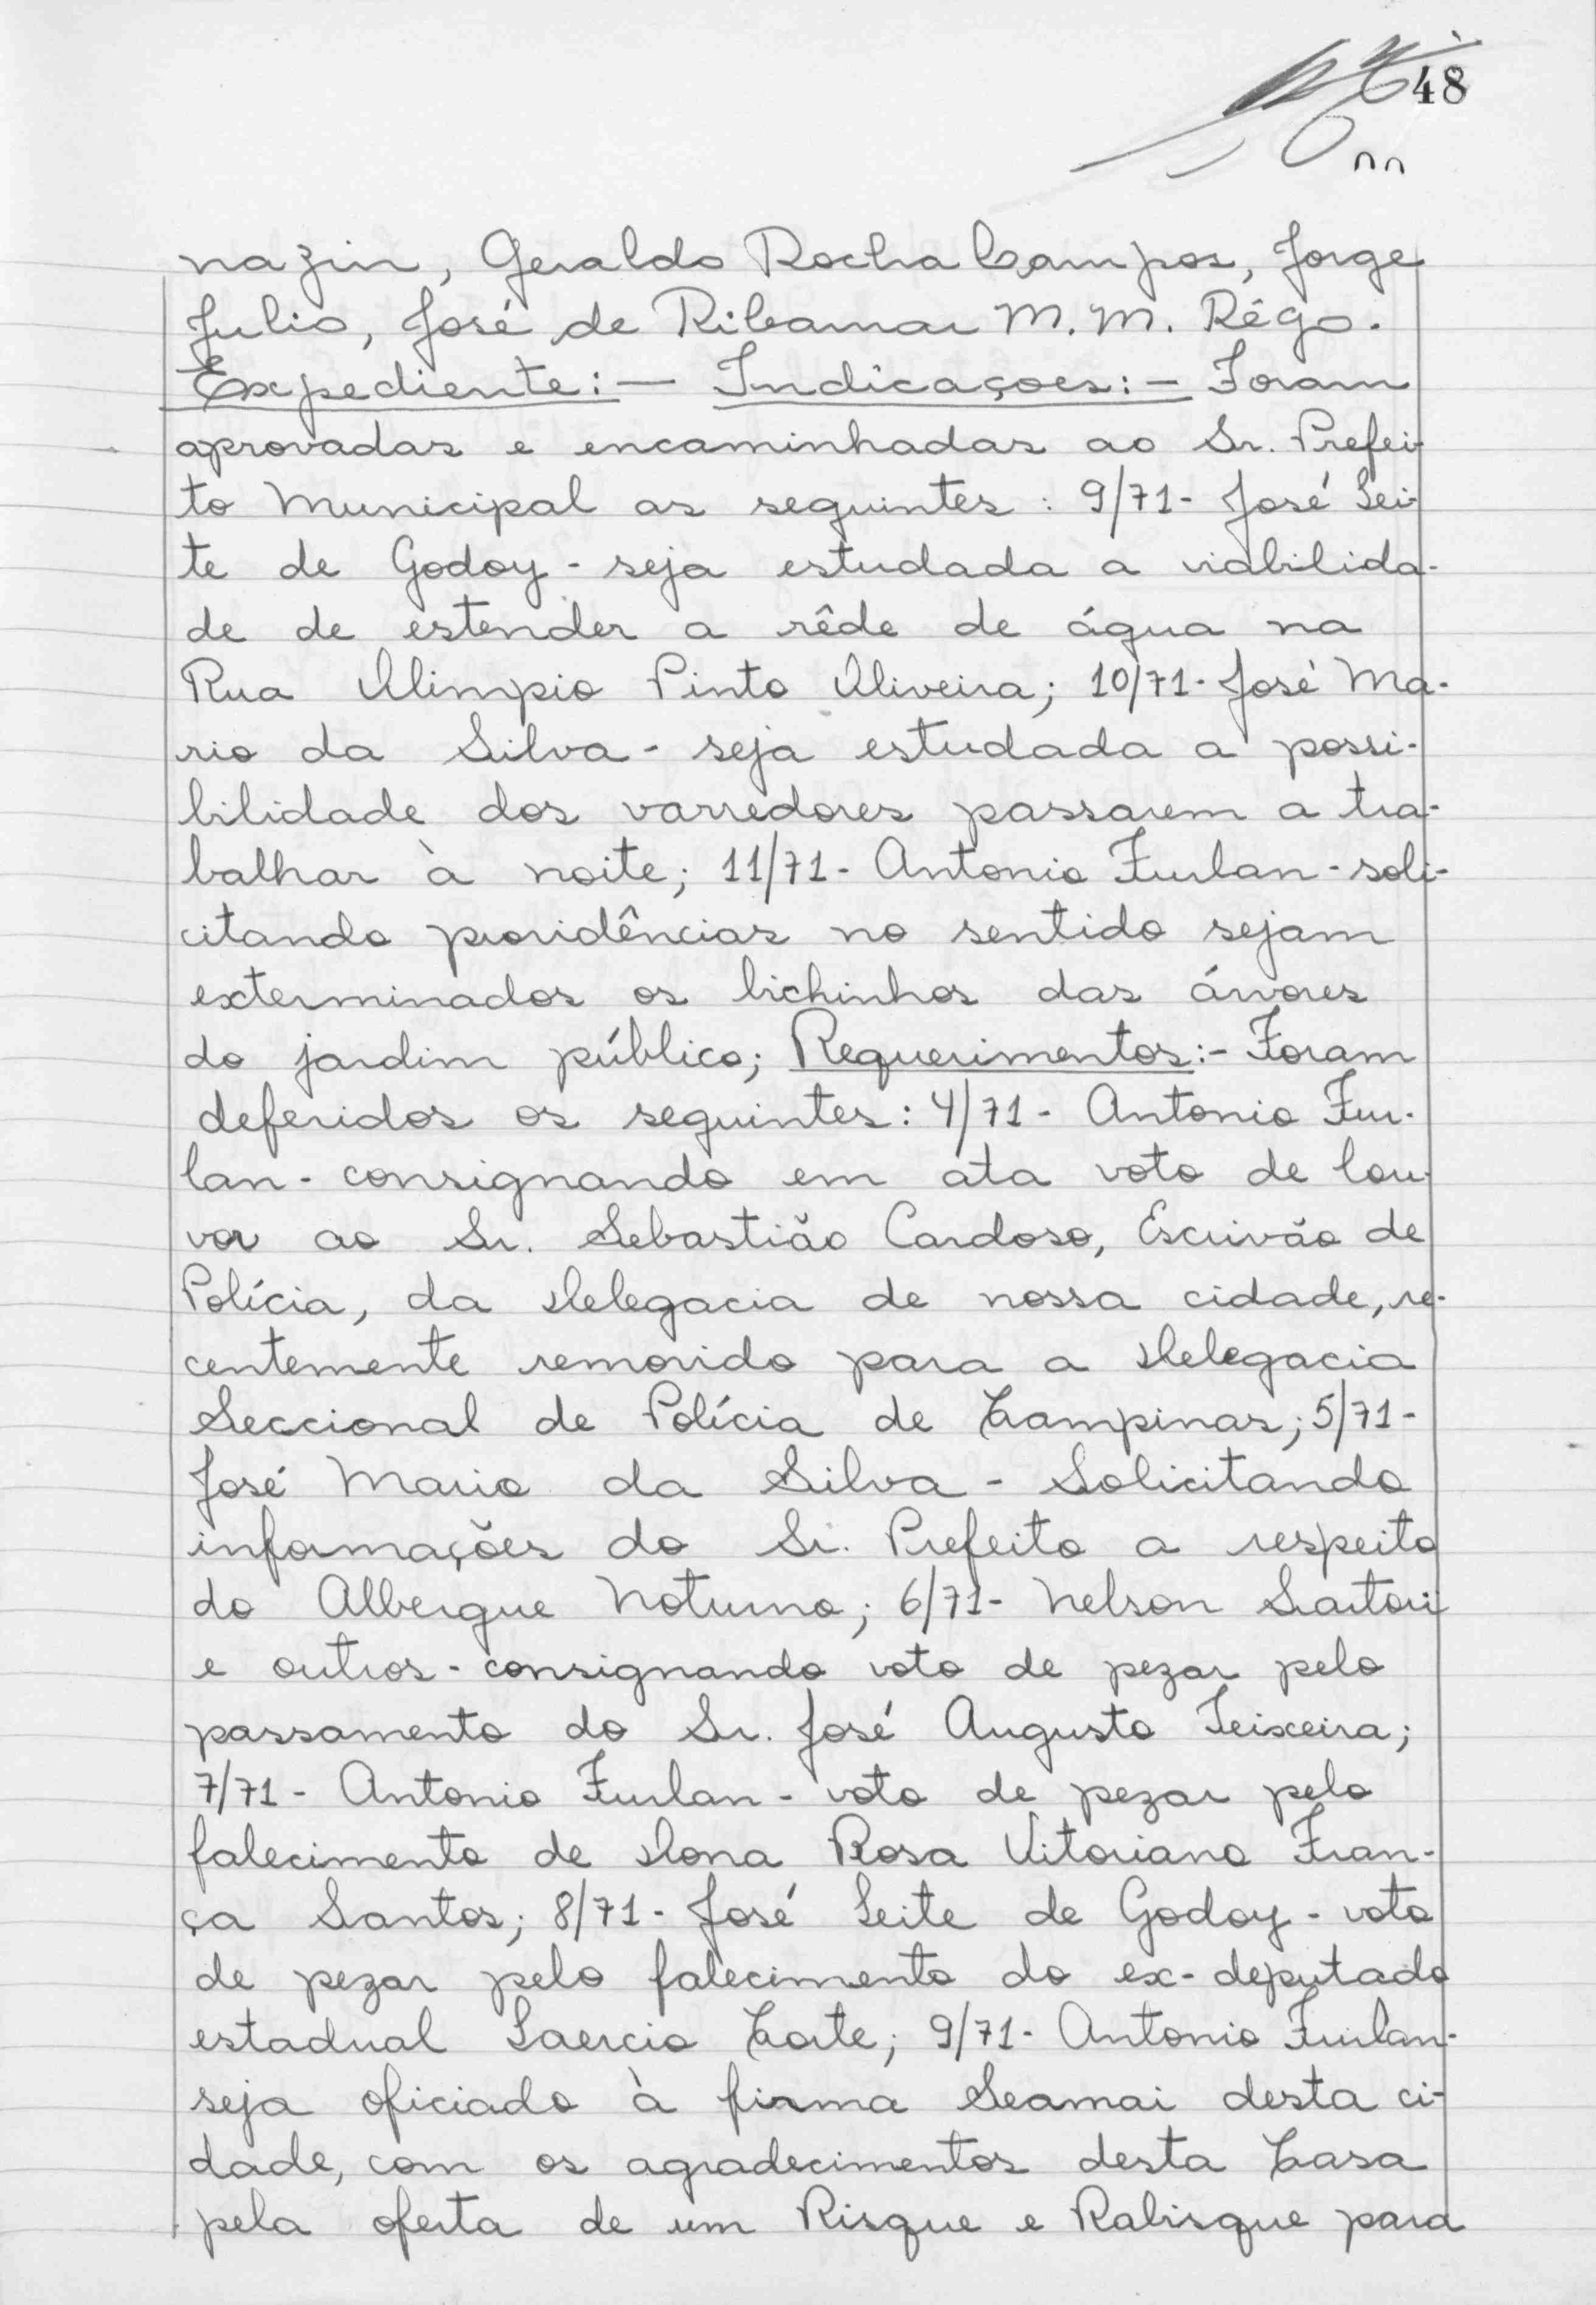 48
nazin, Geraldo Rocha Campos, Jorge
Julio, José de Ribamar M. M. Rêgo.
Expediente: — Indicaçoes: — Foram
aprovadas e encaminhadas ao Sr. Prefei-
to Municipal as seguintes : 9/71 - José Lei-
te de Godoy - seja estudada a viabilida-
de de estender a rêde de água na
Rua Olimpio Pinto Oliveira; 10/71 - José Ma-
rio da Silva - seja estudada a possi-
bilidade dos varredores passarem a tra-
balhar à noite; 11/71 - Antonio Furlan - soli-
citando providências no sentido sejam
exterminados os bichinhos das árvores
do jardim público; Requerimentos: - Foram
deferidos os seguintes: 4/71 - Antonio Fur-
lan - consignando em ata voto de lou-
vor ao Sr. Sebastião Cardoso, Escrivão de
Polícia, da Delegacia de nossa cidade, re-
centemente removido para a Delegacia
Seccional de Polícia de Campinas; 5/71 -
José Mario da Silva - Solicitando
informações do Sr. Prefeito a respeito
do Albergue Noturno; 6/71 - Nelson Sartori
e outros - consignando voto de pezar pelo
passamento do Sr. José Augusto Teixeira;
7/71 - Antonio Furlan - voto de pezar pelo
falecimento de Dona Rosa Vitoriano Fran-
ça Santos; 8/71 - José Leite de Godoy - voto
de pezar pelo falecimento do ex-deputado
estadual Laercio Corte; 9/71 - Antonio Furlan -
seja oficiado à firma Seamai desta ci-
dade, com os agradecimentos desta Casa
pela oferta de um Risque e Rabisque para